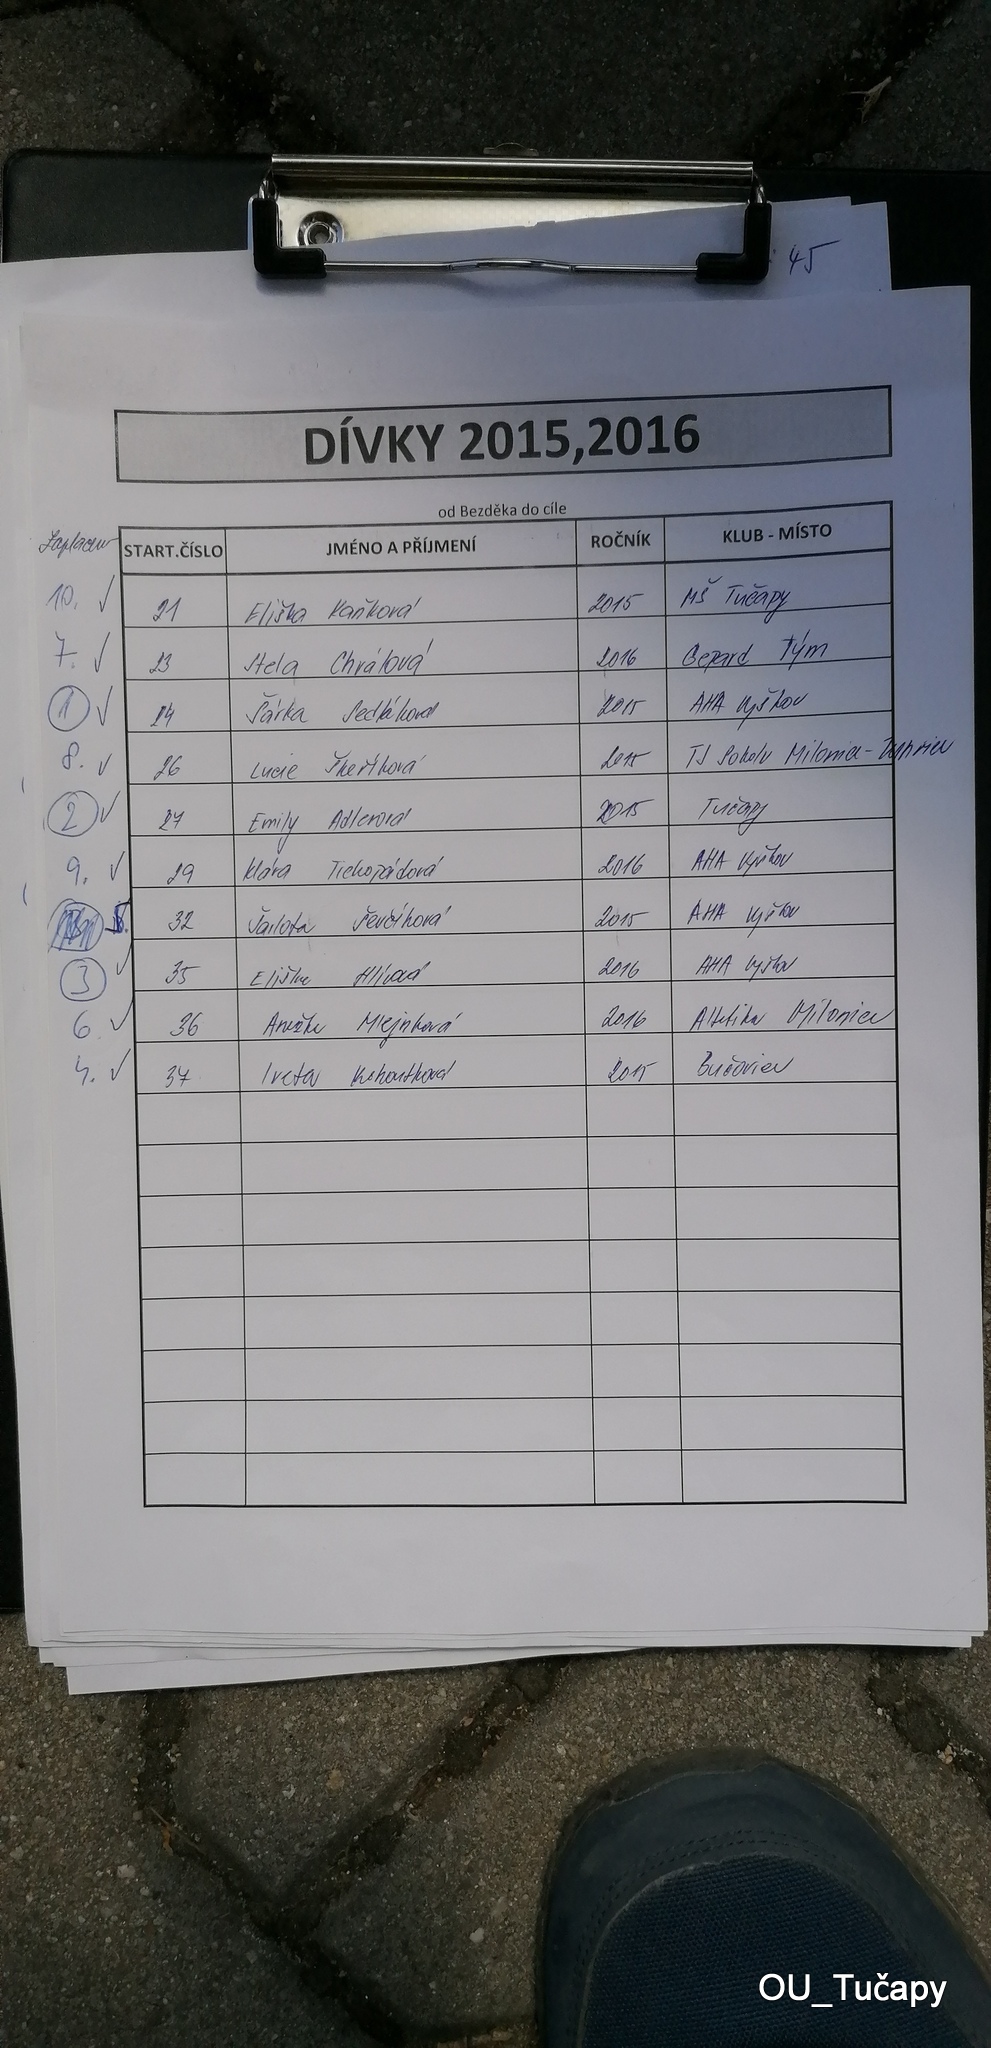 45
DÍVKY 2015,2016
od Bezděka do cíle
Zaplaceno START.ČÍSLO JMÉNO A PŘÍJMENÍ ROČNÍK KLUB - MÍSTO
10. ✓ 21 Eliška Kaňková 2015 MŠ Tučapy
7. ✓ 23 Stela Chrálová 2016 Gepard Tým
1 ✓ 24 Šárka Sedláková 2015 AHA Vyškov
8. ✓ 26 Lucie Škeříková 2015 TJ Sokolv Milonice-
2 ✓ 27 Emily Adlerová 2015 Tučapy
9. ✓ 29 Klára Tichopádová 2016 AHA Vyškov
5. 32 Šarlota Ševčíková 2015 AHA Vyškov
3 ✓ 35 Eliška Hlívová 2016 AHA Vyškov
6. ✓ 36 Anežka Mlejnková 2016 Atletika Milonice
4. ✓ 37 Iveta Kohoutková 2015 Bučovice
OU_Tučapy